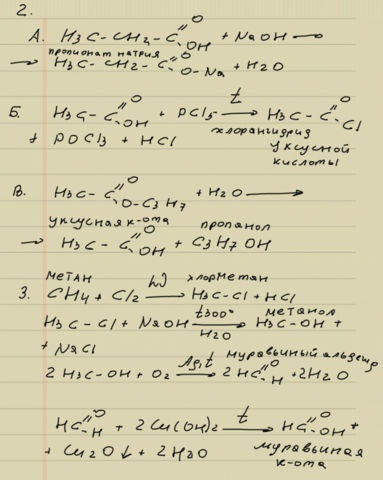 2.
А. H₃C-CH₂-C=O-OH + NaOH ⟶
пропионат натрия
⟶ H₃C-CH₂-C=O-O-Na + H₂O
Б. H₃C-C=O-OH + PCl₅ ⟶ t H₃C-C=O-Cl
+ POCl₃ + HCl хлорангидрид
уксусной
кислоты
В. H₃C-C=O-O-C₃H₇ + H₂O ⟶
уксусная к-ота пропанол
⟶ H₃C-C=O-OH + C₃H₇OH
метан хлорметан
3. CH₄ + Cl₂ ⟶ hν H₃C-Cl + HCl
метанол
H₃C-Cl + NaOH ⟶ t300° H₂O H₃C-OH +
+ NaCl
муравьиный альдегид
2H₃C-OH + O₂ ⟶ Ag,t 2HC=O-H + 2H₂O
HC=O-H + 2Cu(OH)₂ ⟶ t HC=O-OH +
+ Cu₂O↓ + 2H₂O муравьиная
к-ота